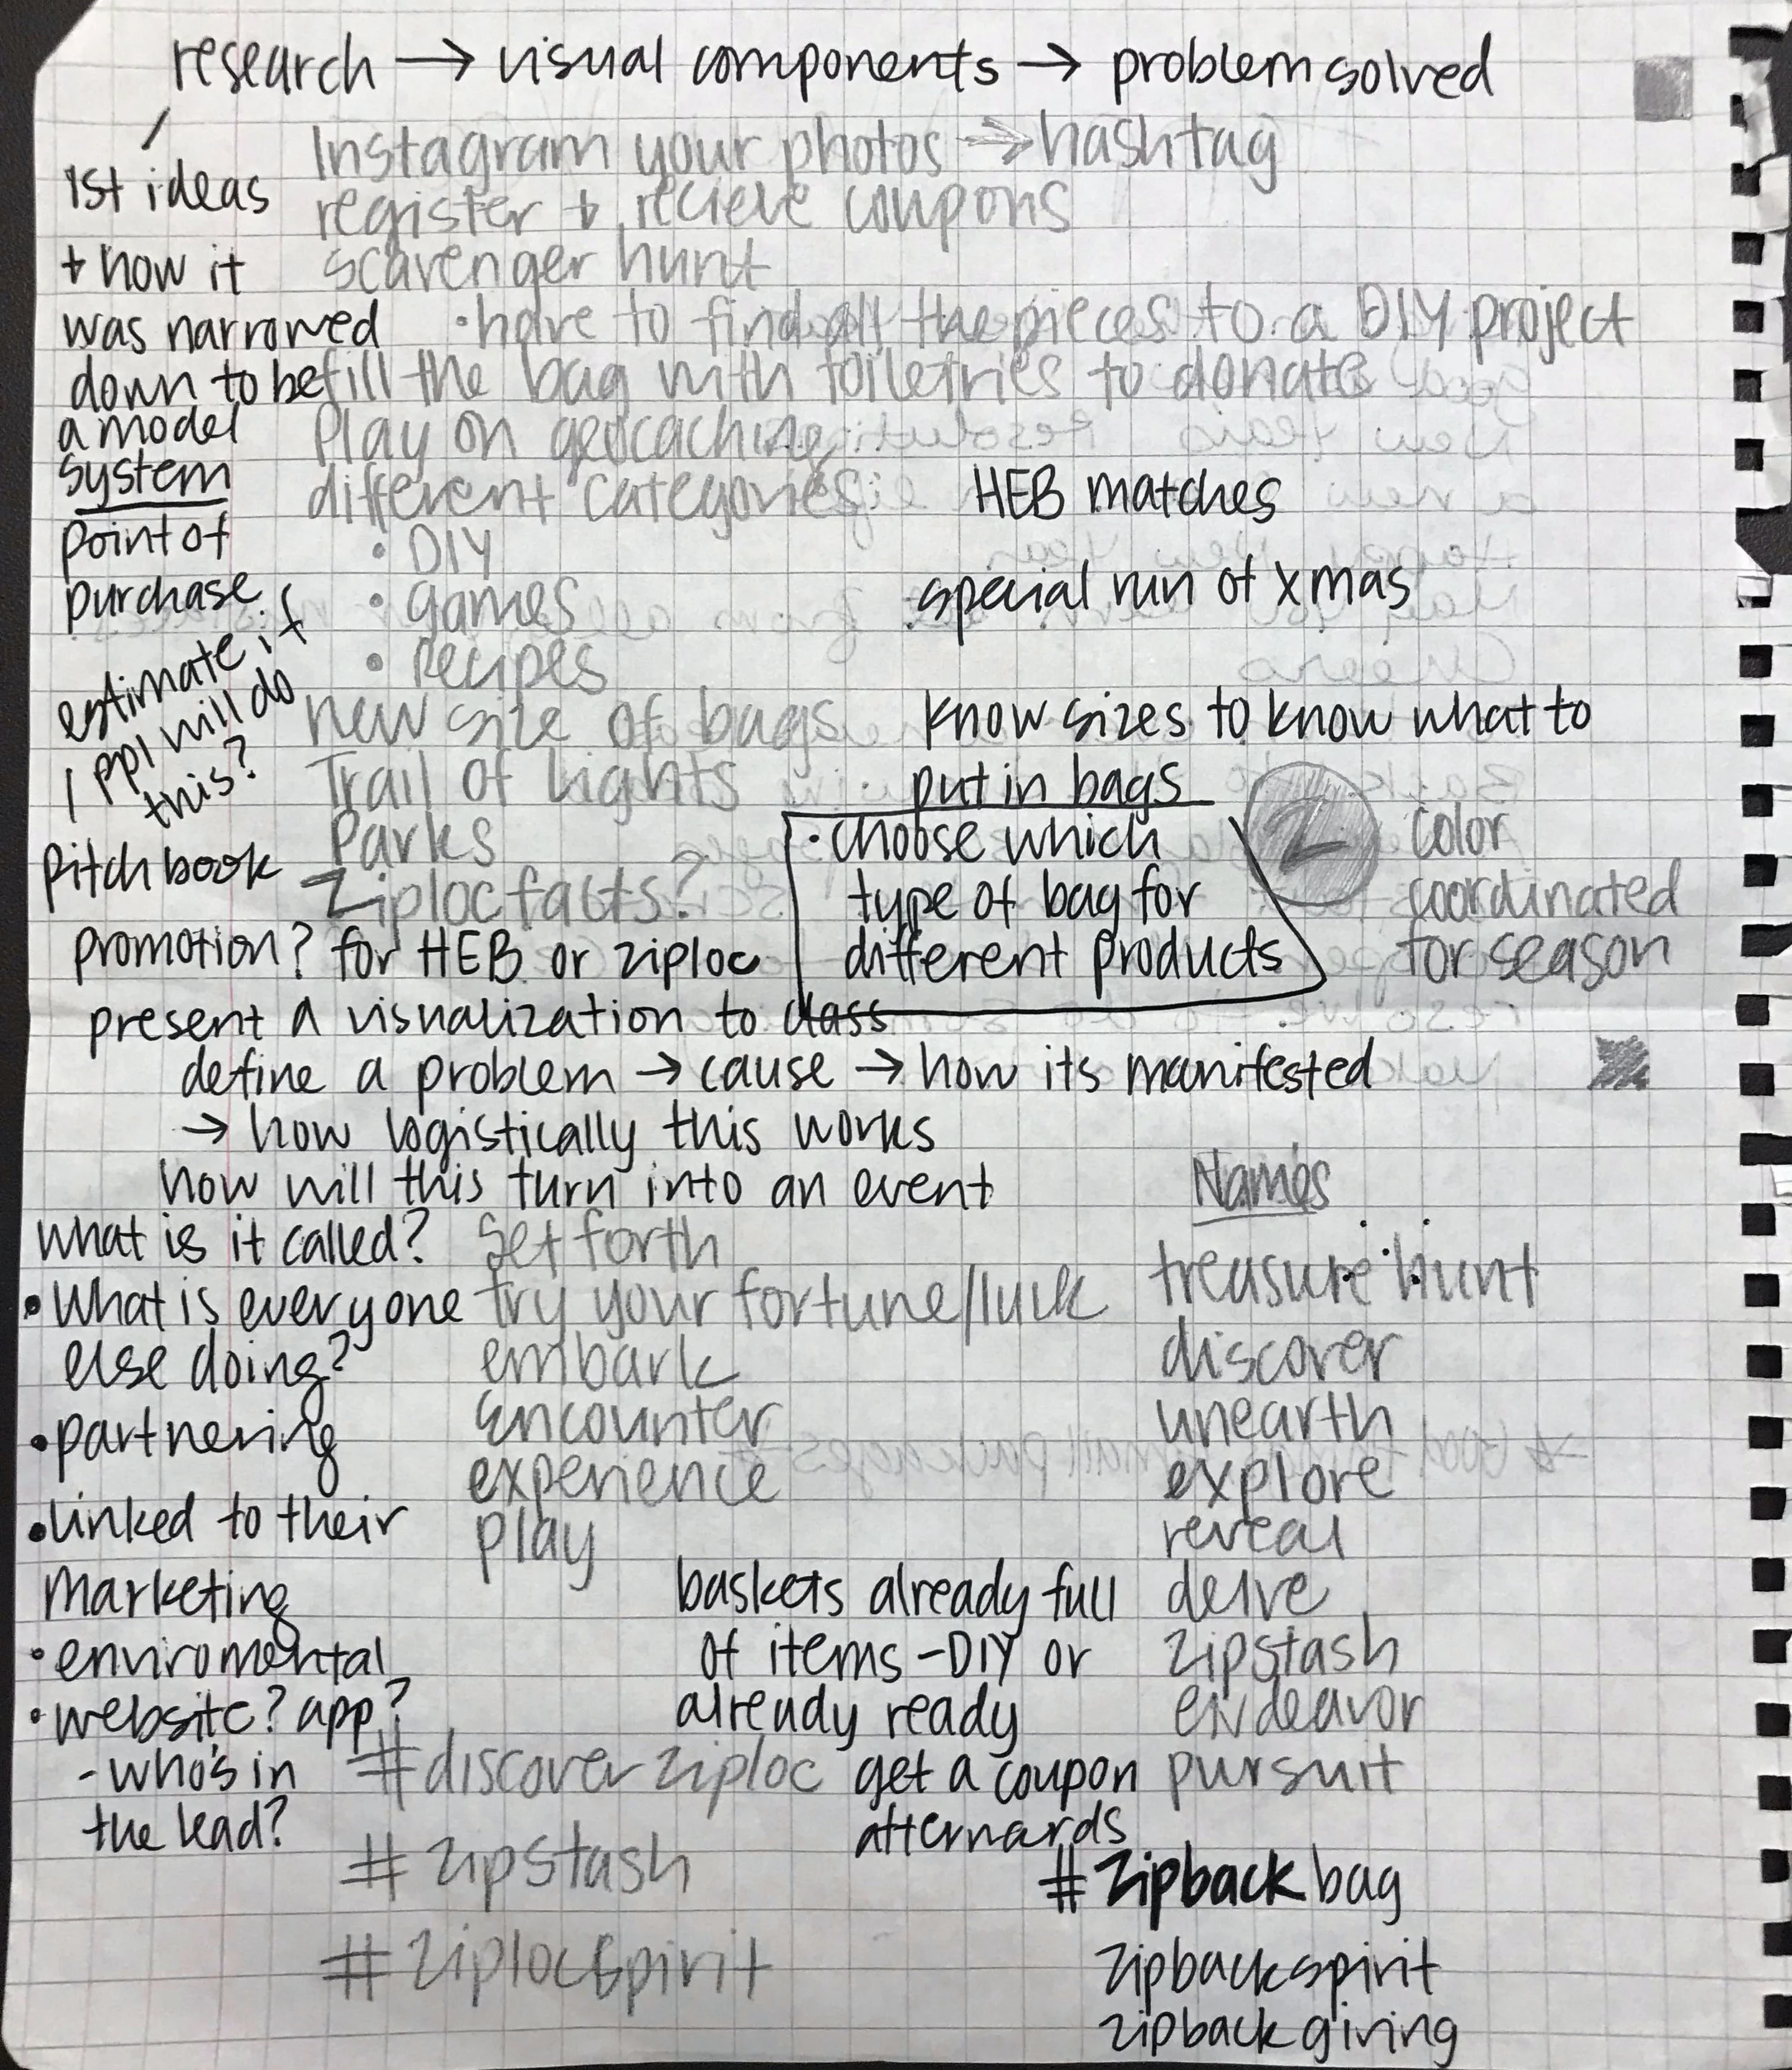 research → visual components → problem solved
Instagram your photos → hashtag
1st ideas
register + recieve coupons
+ how it
scavenger hunt
was narrowed
• have to find all the pieces to a DIY project
down to be
fill the bag with toiletries to donate
a model
Play on geocaching
system
different categories
HEB matches
point of
• DIY
purchase
• games
special run of xmas
• Recipes
estimate if
ppl will do
this?
new size of bags
know sizes to know what to
put in bags
Trail of Lights
Parks
• choose which
type of bag for
different products
2
color
coordinated
for season
Pitch book
Ziploc facts?
promotion? for HEB or ziploc
present a visualization to class
define a problem → cause → how its manifested
→ how logistically this works
how will this turn into an event
Names
what is it called?
Set forth
treasure hunt
• What is everyone
else doing?
try your fortune/luck
embark
discover
encounter
unearth
• partnering
experience
explore
• linked to their
marketing
play
reveal
baskets already full
of items - DIY or
already ready
delve
• enviromental
zipstash
• website? app?
endeavor
- who's in
the lead?
#discoverziploc
get a coupon
afterwards
pursuit
#zipstash
#Zipback bag
#ziplocspirit
zipbackspirit
zipbackgiving